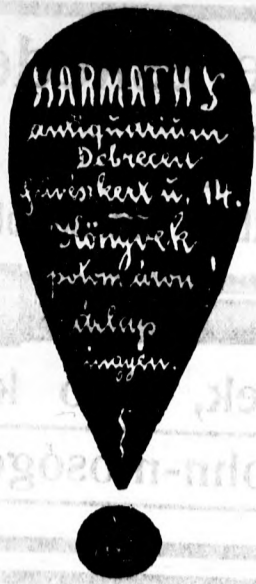 HARMATHY
antiquárium
Debrecen
Füvészkert u. 14.
Könyvek
potom áron!
árlap
ingyen.